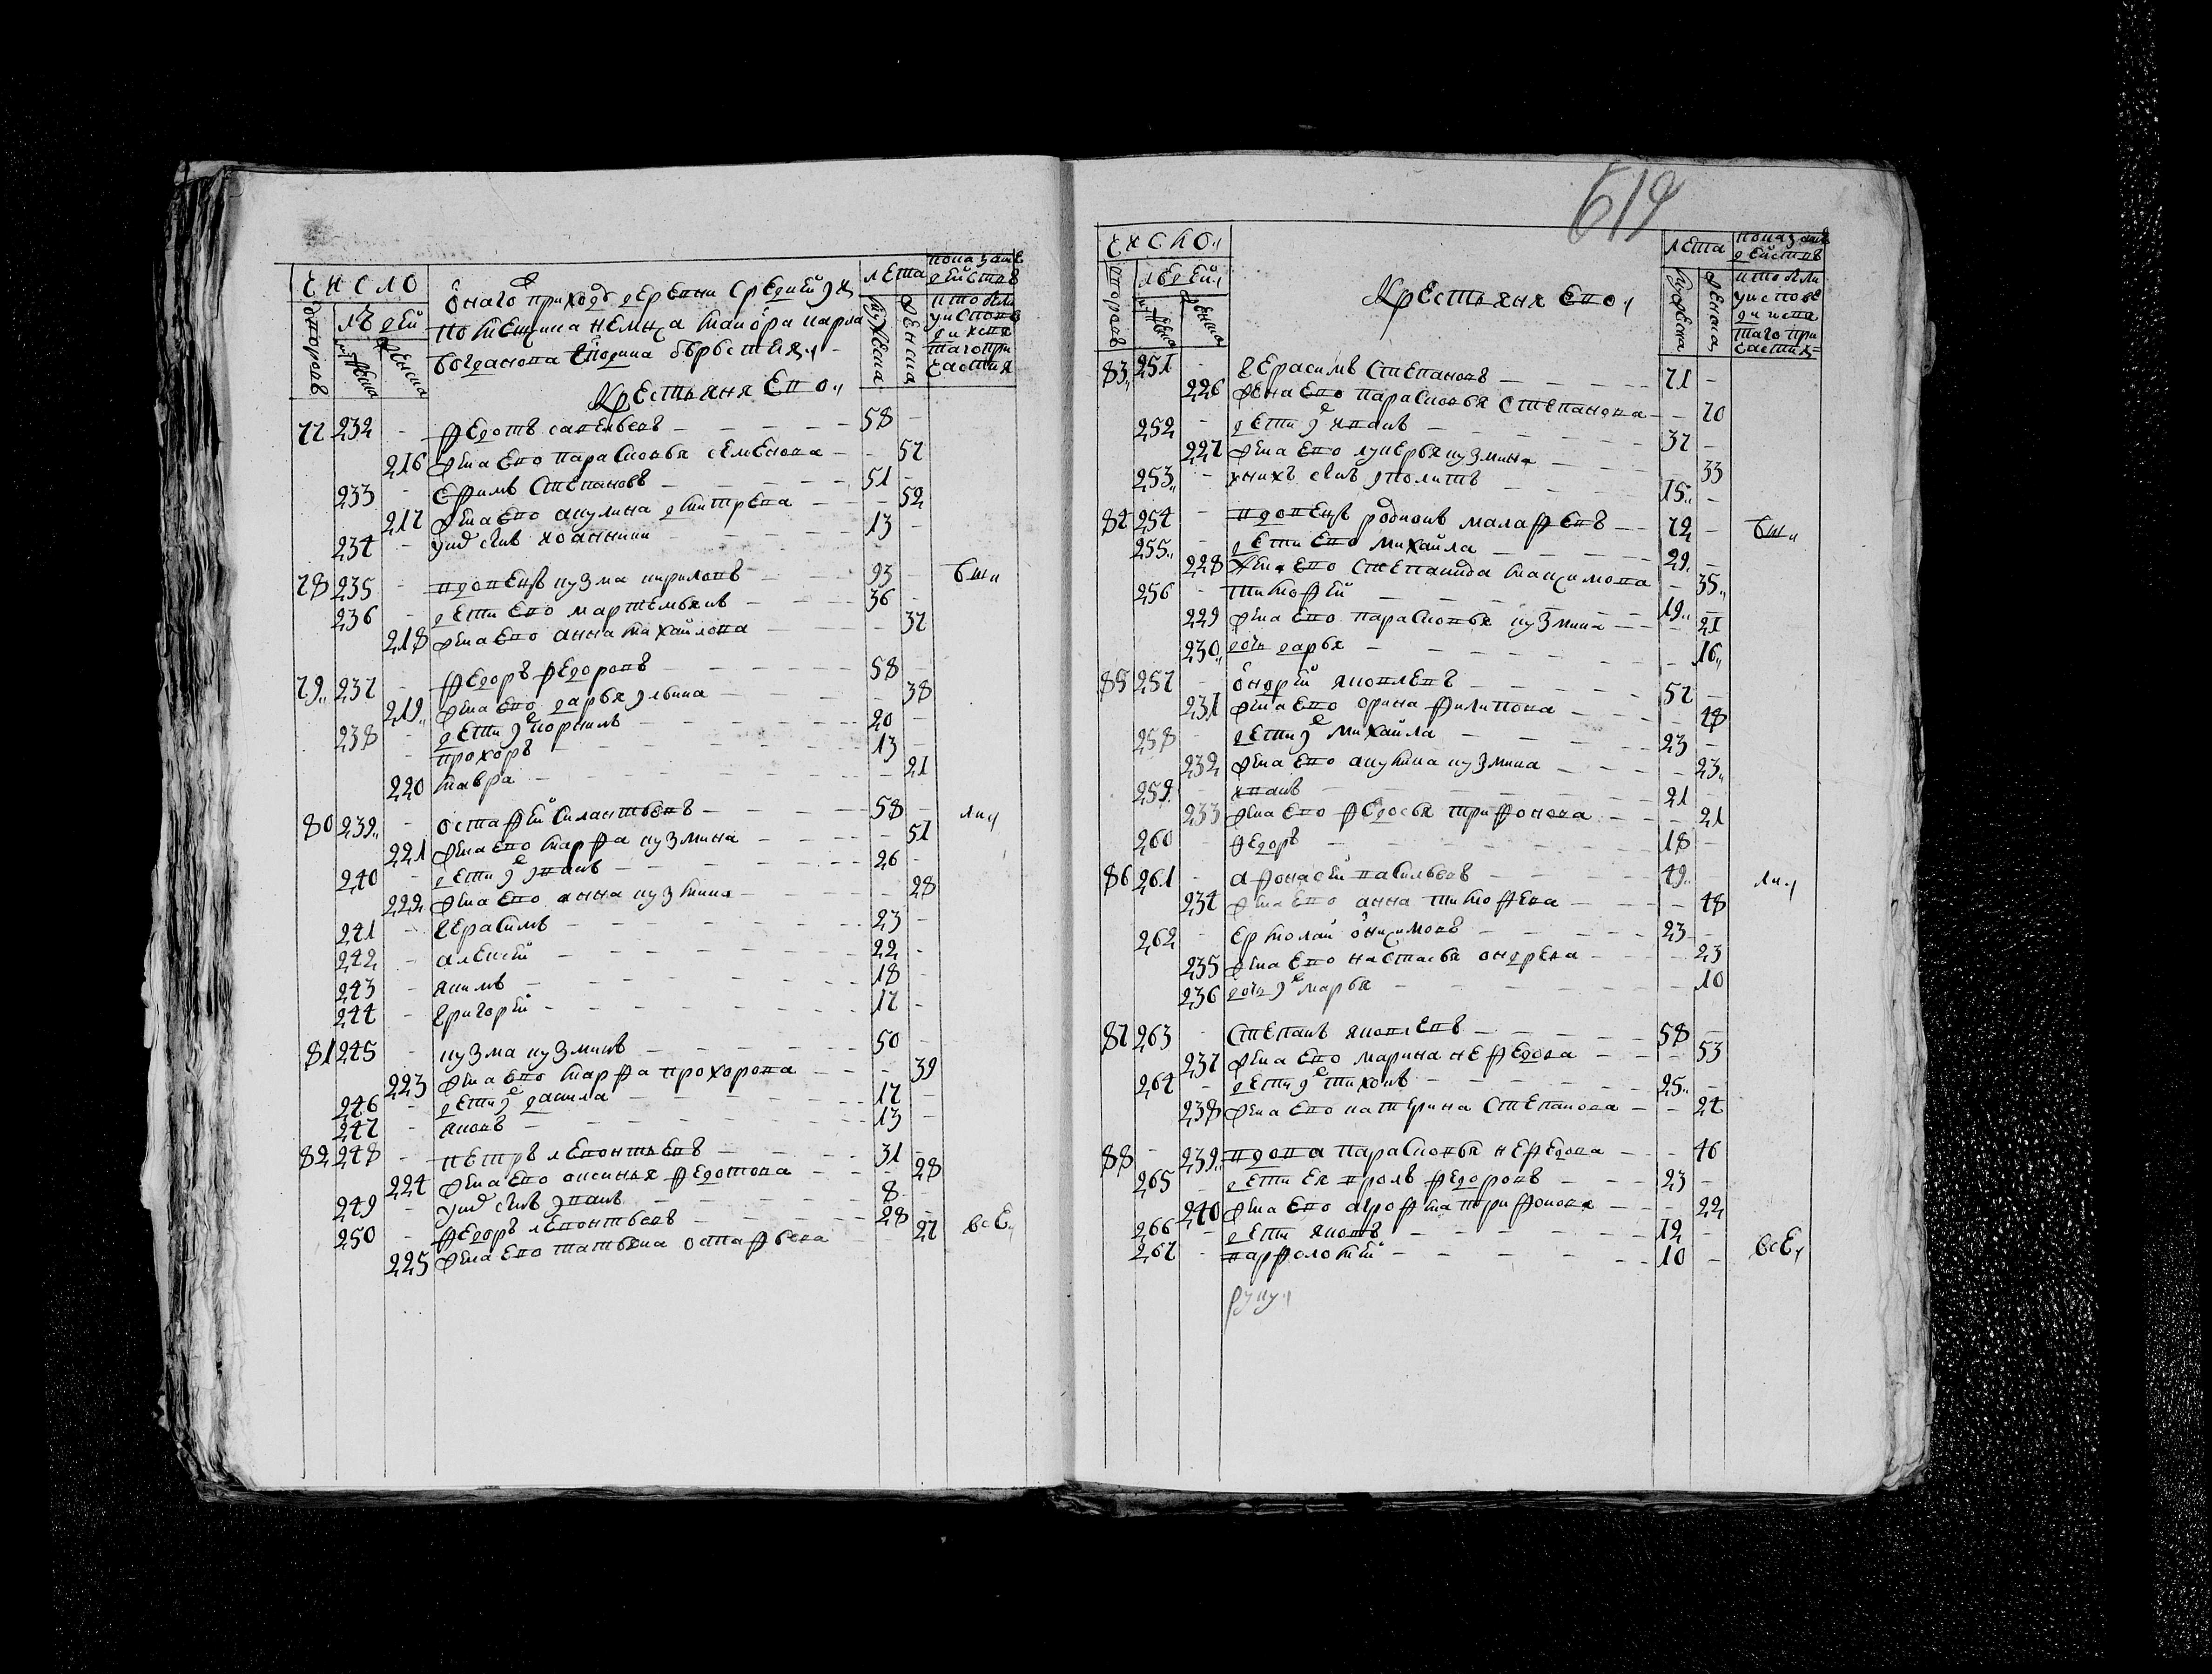 число
людей
дворовъ
мужеска
женска
Онаго приходу деревни
помещика немца маиора карла
Крестьяня ево
лета
мужеска
женска
показание
действъ
кто были
у испове
ди и свя
таго при
частия
77 232 - Федотъ савельевъ - 58 -
216 жена ево парасковья семенова - 57
233 - Ефимъ Степановъ - 51 -
217 жена ево акулина дмитрева - 52
234 - у них снъ иоанникии 13 -
78 235 - вдовецъ кузма кириловъ 93 - бы
236 - дети ево мартемьянъ - 36 -
218 жена ево анна михайлова - 37
79 237 - Федоръ Федоровъ - 58 -
219 жена ево дарья ульина - 38
238 - дети их корнилъ - 20 -
- прохоръ - 13 -
220 мавра - 21
80 239 - остафей силантьевъ - 58 -
221 жена ево марфа кузмина - 51
240 - дети их иванъ - 26 -
222 жена ево анна кузмина - 28
241 - герасимъ - 23 -
242 - алексей - 22 -
243 - якимъ - 18 -
244 - григорей - 17 -
81 245 - кузма кузминъ - 50 -
223 жена ево марфа прохорова - 39
246 - дети их данила - 17 -
247 - яковъ - 13 -
82 248 - петръ леонтьевъ - 31 -
224 жена ево аксинья федотова - 28
249 - у них снъ иванъ - 8 -
250 - федоръ леонтьевъ - 28 -
225 жена ево татьяна остафьева - 27 все
619
число
людей
дворовъ
мужеска
женска
Крестьяня ево
лета
мужеска
женска
показание
действъ
кто были
у испове
ди и свя
таго при
частия
83 251 - герасимъ Степановъ - 71 -
226 жена ево парасковья Степанова - 70
252 - дети их иванъ - 37 -
227 жена ево лукерья кузмина - 33
253 - у них снъ иполитъ - 15 -
84 254 - вдовецъ родионъ малафеевъ - 72 - бы
255 - дети ево михайла - 29 -
228 жена ево степанида максимова - 35
256 - тимофей - 19 -
229 жена ево парасковья кузмина - 21
230 дочь дарья - 16
85 257 - ондрей яковлевъ - 57 -
231 жена ево орина филипова - 48
258 - дети их михайла - 23 -
232 жена ево акулина кузмина - 23
259 - иванъ - 21 -
233 жена ево федосья трифонова - 21
260 - федоръ - 18 -
86 261 - афонасей васильевъ - 49 -
234 жена ево анна тимофеева - 48
262 - ермолай онисимовъ - 23 -
235 жена ево настасья ондреева - 23
236 дочь их марья - 10
87 263 - Степанъ яковлевъ - 58 -
237 жена ево марина нефедова - 53
264 - дети их тихонъ - 25 -
238 жена ево катерина Степанова - 24
88 - 239 вдова парасковья нефедова - 46
265 - дети ея фролъ федоровъ - 23 -
240 жена ево агрофена трифонова - 22
266 - дети яковъ - 12 -
267 - варфоломей - 10 - все